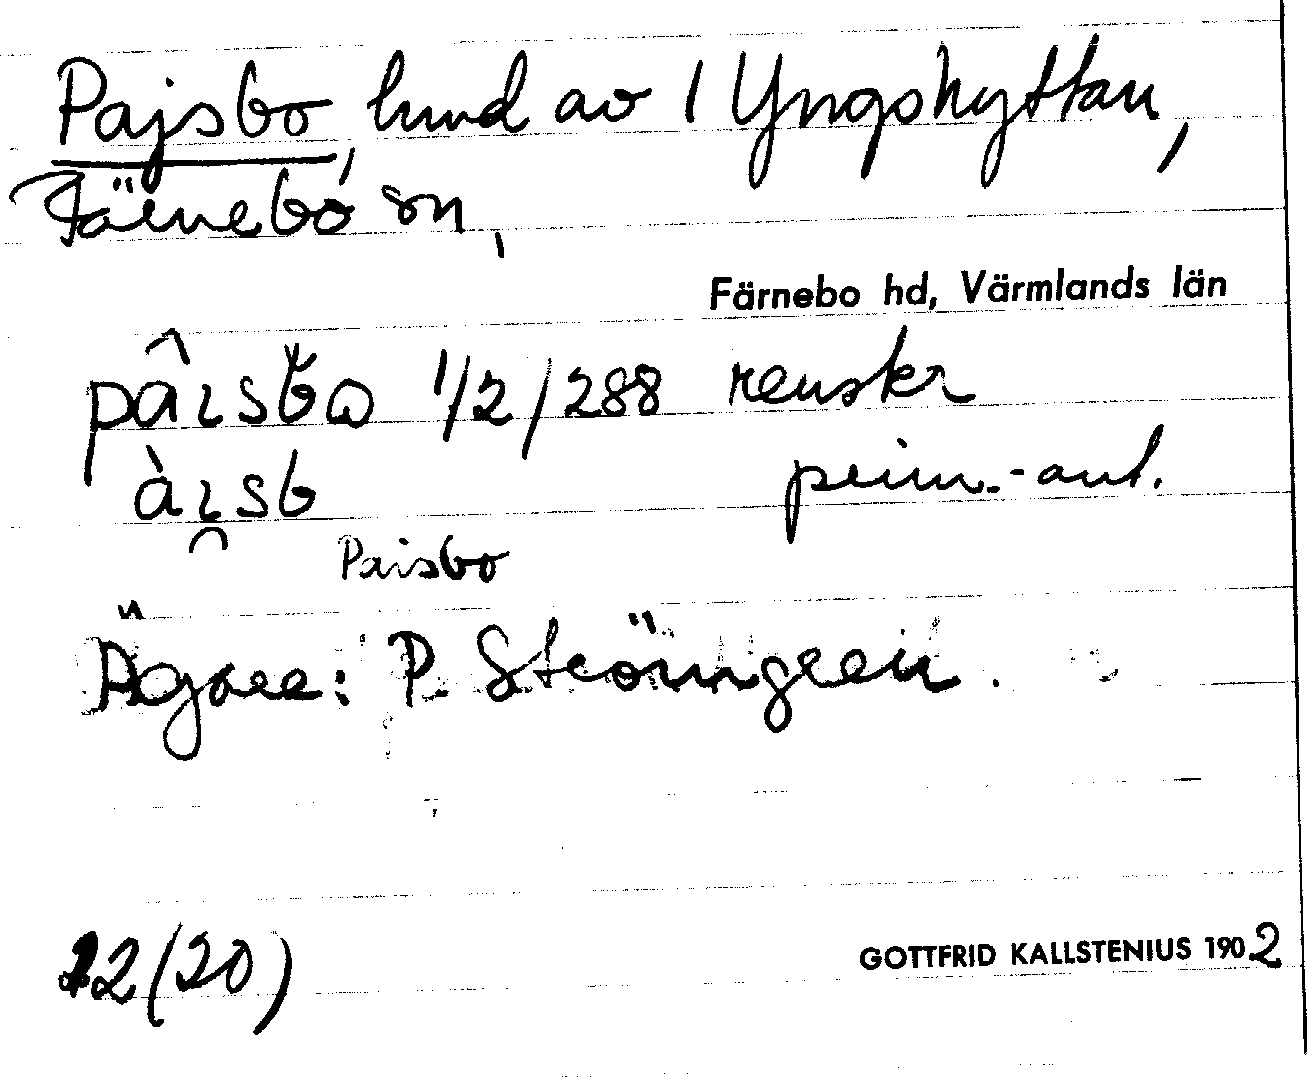 Pajsbo, lund av 1 Yngshyttan,
Färnebo sn,
Färnebo hd, Värmlands län
pâɪsbo 1/2/288 renskr
àɪsb prim.-ant.
Paisbo
Ägare: P. Strömgren.
22(20)
GOTTFRID KALLSTENIUS 1902